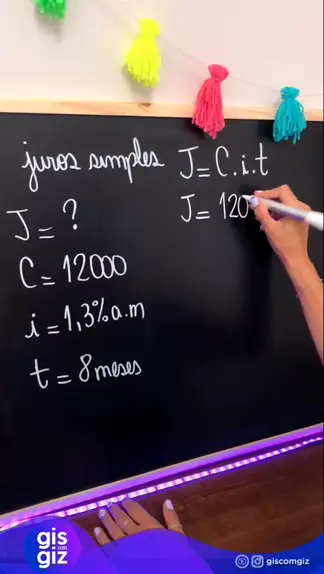 juros simples
J = ?
C = 12000
i = 1,3% a.m
t = 8 meses
J = C.i.t
J = 120
gis
com
giz
giscomgiz